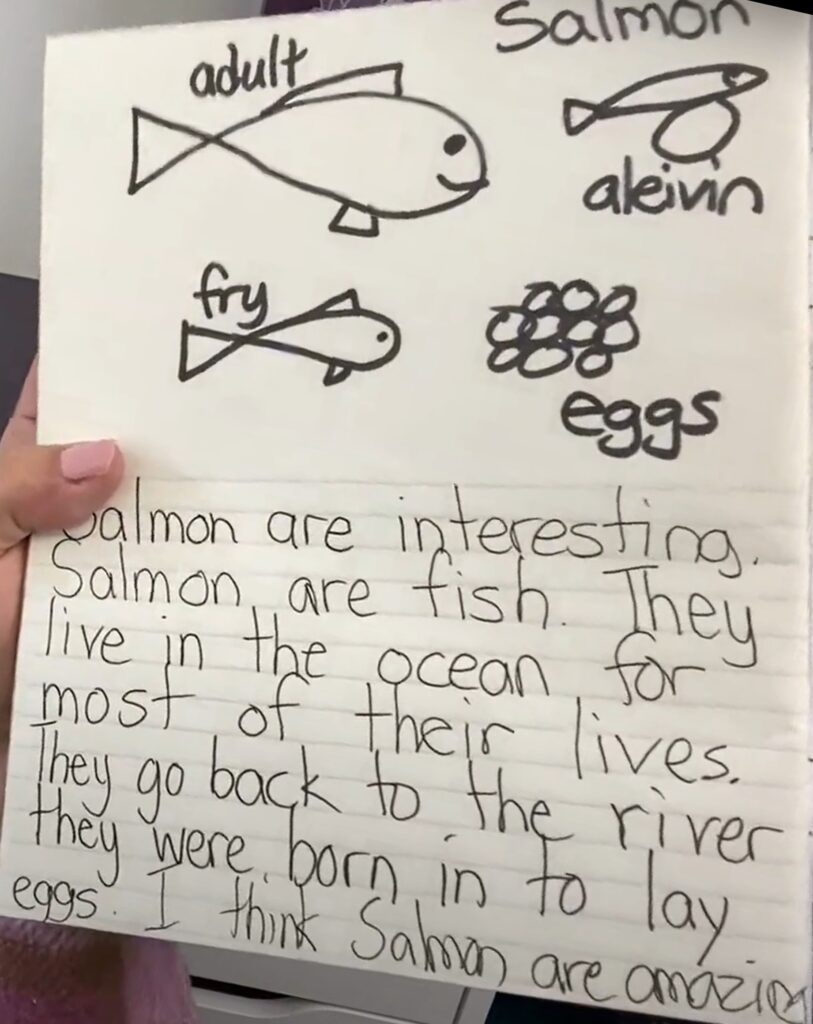 Salmon
adult
aleivin
fry
eggs
Salmon are interesting.
Salmon are fish. They
live in the ocean for
most of their lives.
They go back to the river
they were born in to lay
eggs. I think Salmon are